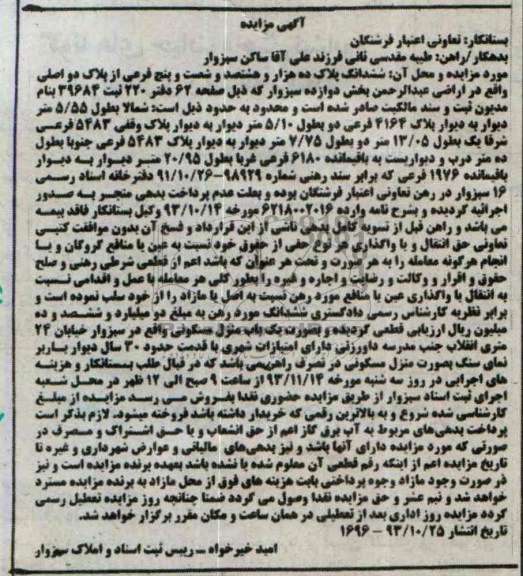 آگهی مزایده
بستانکار: تعاونی اعتبار فرشتگان
بدهکار/راهن: طیبه مقدسی ثانی فرزند علی آقا ساکن سبزوار
مورد مزایده و محل آن: ششدانگ پلاک ده هزار و هشتصد و شصت و پنج فرعی از پلاک دو اصلی
واقع در اراضی عبدالرحمن بخش دوازده سبزوار که ذیل صفحه ۶۲ دفتر ۲۲۰ ثبت ۳۹۶۸۴ بنام
مدیون ثبت و سند مالکیت صادر شده است و محدود به حدود ذیل است: شمالا بطول ۵/۵۵ متر
دیوار به دیوار پلاک ۴۱۶۴ فرعی دو بطول ۵/۱۰ متر دیوار به دیوار پلاک وقفی ۵۴۸۳ فرعی
شرقا یک بطول ۱۳/۰۵ متر دو بطول ۷/۷۵ متر دیوار به دیوار پلاک ۵۴۸۳ فرعی جنوبا بطول
ده متر درب و دیواریست به باقیمانده ۶۱۸۰ فرعی غربا بطول ۲۰/۹۵ متر دیوار به دیوار
باقیمانده ۱۹۷۶ فرعی که برابر سند رهنی شماره ۹۸۹۲۹-۹۱/۱۰/۲۶ دفترخانه اسناد رسمی
۱۶ سبزوار در رهن تعاونی اعتبار فرشتگان بوده و بعلت عدم پرداخت بدهی منجر به صدور
اجرائیه گردیده و بشرح نامه وارده ۶۲۱۸۰۰۲۰۱۶ مورخه ۹۳/۱۰/۱۴ وکیل بستانکار فاقد بیمه
می باشد و راهن قبل از تسویه کامل بدهی ناشی از این قرارداد و فسخ آن بدون موافقت کتبی
تعاونی حق انتقال و یا واگذاری هر گونه حقی از حقوق خود نسبت به عین یا منافع گروگان و یا
انجام هرگونه معامله را به هر صورت و تحت هر عنوان که باشد اعم از قطعی شرطی رهنی و صلح
حقوق و اقرار و وکالت و رضایت و اجاره و غیره را بطور کلی هر معامله یا عمل و اقدامی نسبت
به انتقال یا واگذاری عین یا منافع مورد رهن نسبت به اصل یا مازاد را از خود سلب نموده است و
برابر نظریه کارشناس رسمی دادگستری ششدانگ مورد رهن به مبلغ دو میلیارد و ششصد و ده
میلیون ریال ارزیابی قطعی گردیده و بصورت یک باب منزل مسکونی واقع در سبزوار خیابان ۲۴
متری انقلاب جنب مدرسه داورزنی دارای امتیازات شهری با قدمت حدود ۳۰ سال دیوار باربر
نمای سنگ بصورت منزل مسکونی در تصرف راهن می باشد که در قبال طلب بستانکار و هزینه
های اجرایی در روز سه شنبه مورخه ۹۳/۱۱/۱۴ از ساعت ۹ صبح الی ۱۲ ظهر در محل شعبه
اجرای ثبت اسناد سبزوار از طریق مزایده حضوری نقدا بفروش می رسد مزایده از مبلغ
کارشناسی شده شروع و به بالاترین رقمی که خریدار داشته باشد فروخته میشود. لازم بذکر است
پرداخت بدهی‌های مربوط به آب برق گاز اعم از حق انشعاب و یا حق اشتراک و مصرف در
صورتی که مورد مزایده دارای آنها باشد و نیز بدهی‌های مالیاتی و عوارض شهرداری و غیره تا
تاریخ مزایده اعم از اینکه رقم قطعی آن معلوم شده یا نشده باشد بعهده برنده مزایده است و نیز
در صورت وجود مازاد وجوه پرداختی بابت هزینه های فوق از محل مازاد به برنده مزایده مسترد
خواهد شد و نیم عشر و حق مزایده نقدا وصول می گردد ضمنا چنانچه روز مزایده تعطیل رسمی
گردد مزایده روز اداری بعد از تعطیلی در همان ساعت و مکان مقرر برگزار خواهد شد.
تاریخ انتشار ۹۳/۱۰/۲۵ – ۱۶۹۶
امید خیرخواه – رییس ثبت اسناد و املاک سبزوار